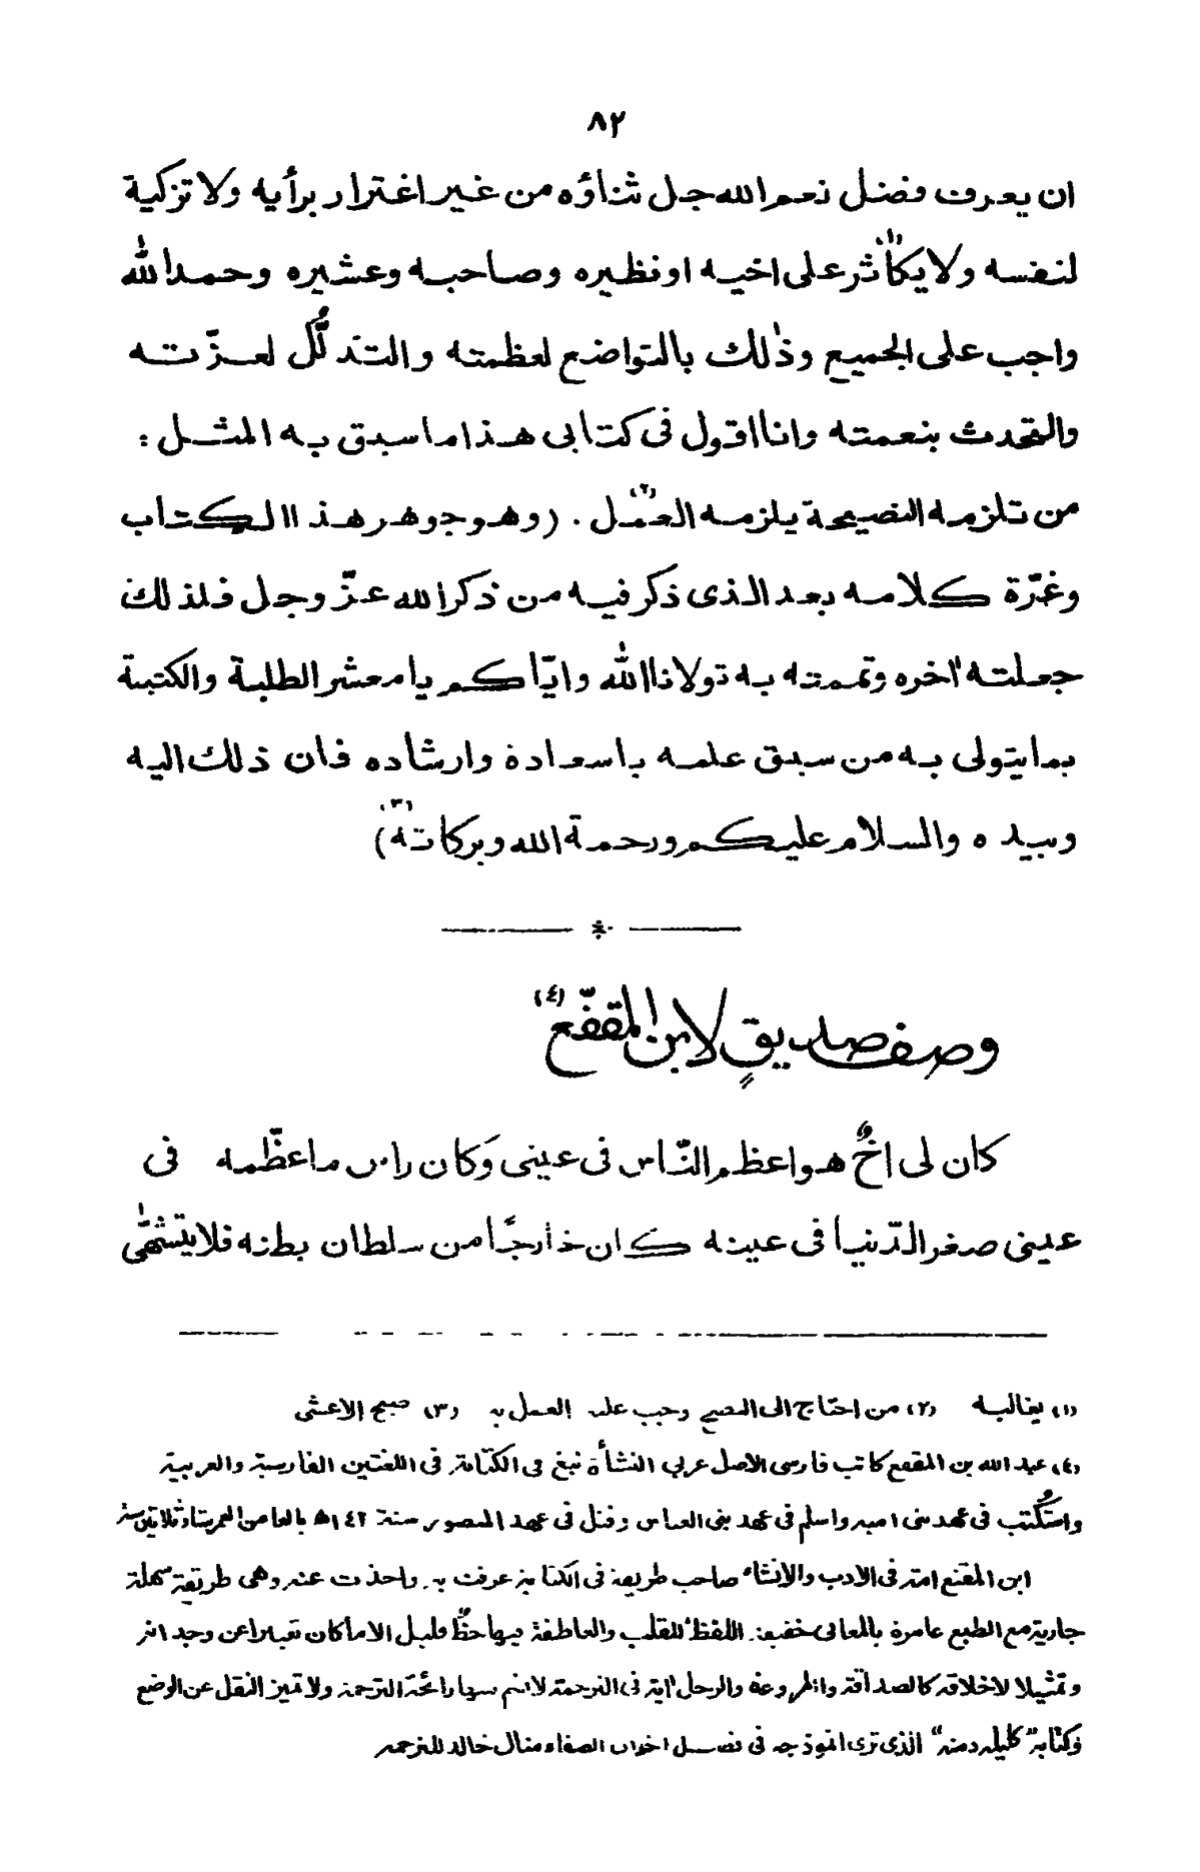 ٨٢
ان يعرف فضل نعم الله جل ثناؤه من غير اغترار برأيه ولا تزكية
لنفسه ولا يكاثر(١) على اخيه او نظيره وصاحبه وعشيره وحمد الله
واجب على الجميع وذٰلك بالتواضع لعظمته والتذلُّل لعزّته
والتحدث بنعمته وانا اقول فى كتابى هذا ما سبق به المثل :
من تلزمه النصيحة يلزمه العمل(٢) . (وهو جوهر هذا الكتاب
وغرّة كلامه بعد الذى ذكر فيه من ذكر الله عزّ وجل فلذلك
جعلته اٰخره وتممته به تولانا الله وايّاكم يا معشر الطلبة والكتبة
بما يتولى به من سبق علمه باسعاده وارشاده فان ذلك اليه
وبيده والسلام عليكم ورحمة الله وبركاته(٣))
وصف صديقٍ لابن المقفّع(٤)
كان لى اخٌ هو اعظم النّاس فى عينى وَكان راس ما عظّمه فى
عينى صغر الدّنيا فى عينه كان خارجًا من سلطان بطنه فلا يتشهّٰى
(١) يغالبه (٢) من احتاج الى النصح وجب عليه العمل به (٣) صبح الاعشى
(٤) عبد الله بن المقفع كاتب فارسى الاصل عربي النشأة نبغ فى الكتابة فى اللغتين الفارسية والعربية
واستُكتب فى عهد بنى اميه واسلم فى عهد بنى العباس وقتل فى عهد المنصور سنة ١٤٢ھ بالغا من العمر ستا وثلاثين سنة
ابن المقفع امة فى الادب والانشاء صاحب طريقة فى الكتابة عرفت به واخذت عنه وهى طريقة سهلة
جارية مع الطبع عامرة بالمعانى خفيفة اللفظ للقلب والعاطفة فيها حظٌّ قليل الا ما كان تعبيرا عن وجدانه
وتمثيلا لاخلاقه كالصداقة والمروءة والرجل اٰية فى الترجمة لا تشم بها رائحة الترجمة ولا تميز النقل عن الوضع
وكتابه "كليله دمنه" الذى ترى انموذجه فى فصل اخوان الصفاء مثال خالد للترجمه